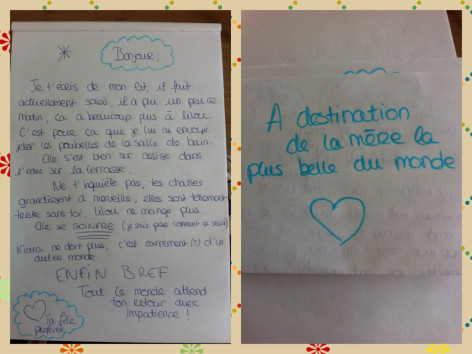 Bonjour,
Je t'écris de mon lit, il fait
actuellement soleil, il a plu un peu ce
matin, ça a beaucoup plus à Lilou.
C'est pour ça que je lui ai envoyé
jeter les poubelles de la salle de bain.
Elle s'est bien sur assise dans
l'eau sur la terrasse.
Ne t'inquiète pas, tes chattes
grandissent à merveille, elles sont totalement
triste sans toi, Lilou ne mange plus.
Elle se GOINFRE (je sais pas comment ça s'écrit)
Kiara ne dort plus, c'est carrément (!) d'un
autre monde.
ENFIN BREF
Tout le monde attend
ton retour avec
impatience !
Ta fille
préférée
A destination
de la mère la
plus belle du monde